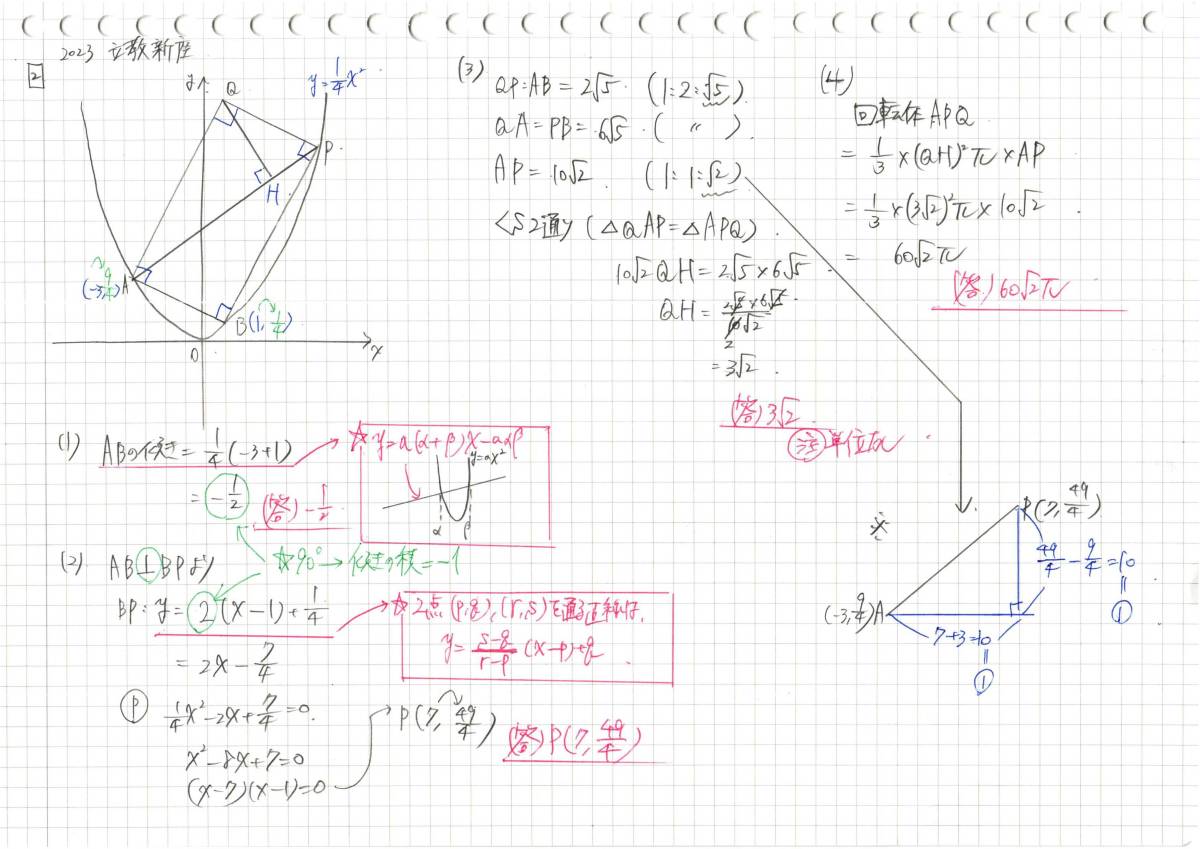 2023 立教新座
2
y
Q
y=1/4x²
P
H
A
(-3, 9/4)
B(1, 1/4)
O
x
(1) ABの傾き = 1/4(-3+1)
= -1/2
(答) -1/2
☆ y=a(α+β)x-aαβ
y=ax²
α
β
(2) AB⊥BPより
☆90°→傾きの積=-1
BP: y=2(x-1)+1/4
☆2点(p,q),(r,s)を通る直線は、
y= (s-q)/(r-p) (x-p)+q
= 2x - 7/4
Ⓟ 1/4x²-2x+7/4=0.
x²-8x+7=0
(x-7)(x-1)=0
P(7, 49/4)
(答) P(7, 49/4)
(3) QP=AB=2√5. (1:2:√5)
QA=PB=6√5. ( 〃 )
AP=10√2 (1:1:√2)
<S2通り (△QAP=△APQ).
10√2QH=2√5×6√5.
QH= 2√5×6√5/10√2.
2
=3√2.
(答) 3√2.
㊟単位なし.
(4)
回転体APQ
= 1/3×(QH)²π×AP
= 1/3×(3√2)²π×10√2.
= 60√2π
(答) 60√2π
※
P(7, 49/4)
49/4 - 9/4 =10
=
①
(-3, 9/4)A
7+3=10
=
①